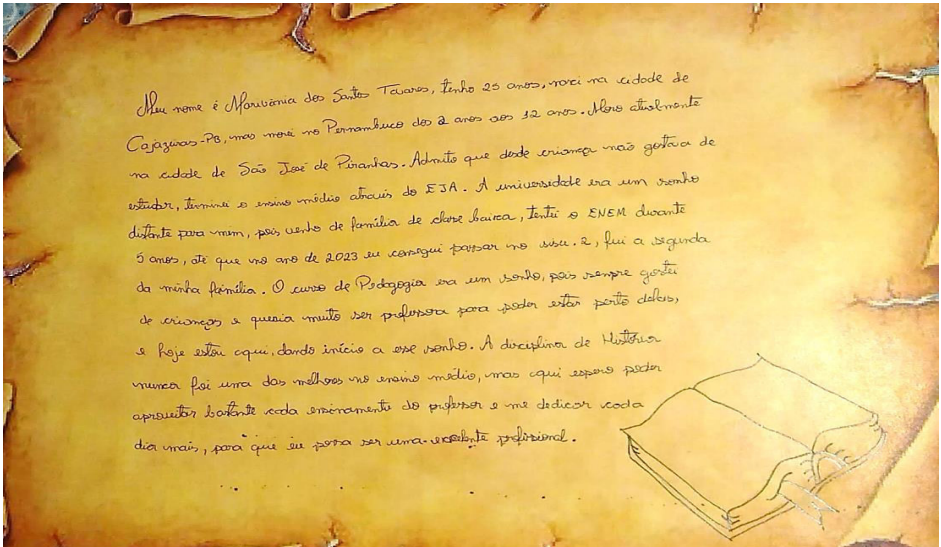 Meu nome é Marivânia dos Santos Tavares, tenho 25 anos, nasci na cidade de
Cajazeiras-PB, mas morei no Pernambuco dos 2 anos aos 12 anos. Moro atualmente
na cidade de São José de Piranhas. Admito que desde criança não gostava de
estudar, terminei o ensino médio através do EJA. A universidade era um sonho
distante para mim, pois venho de família de classe baixa, tentei o ENEM durante
5 anos, até que no ano de 2023 eu consegui passar no sisu. E, fui a segunda
da minha família. O curso de Pedagogia era um sonho, pois sempre gostei
de crianças e queria muito ser professora para poder estar perto delas,
e hoje estou aqui, dando início a esse sonho. A disciplina de História
nunca foi uma das melhores no ensino médio, mas aqui espero poder
aproveitar bastante cada ensinamento do professor e me dedicar cada
dia mais, para que eu possa ser uma excelente profissional.